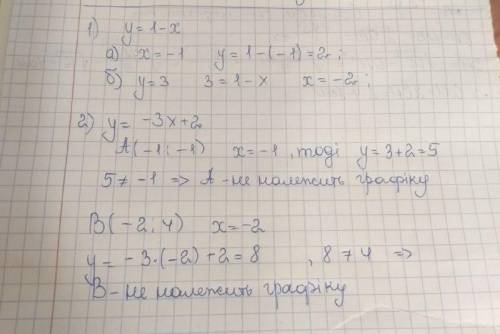 1) y = 1 - x
а) x = -1 y = 1 - (-1) = 2;
б) y = 3 3 = 1 - x x = -2;
2) y = -3x + 2
A(-1; -1) x = -1, тоді y = 3 + 2 = 5
5 ≠ -1 => A - не належить графіку
B(-2, 4) x = -2
y = -3·(-2) + 2 = 8, 8 ≠ 4 =>
B - не належить графіку